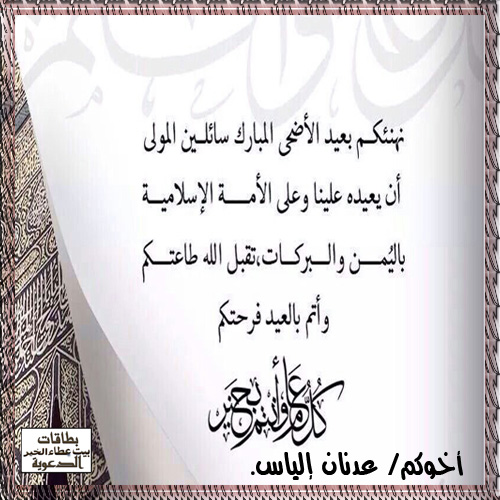 نهنئكم بعيد الأضحى المبارك سائلين المولى
أن يعيده علينا وعلى الأمة الإسلامية
باليُمن والبركات،تقبل الله طاعتكم
وأتم بالعيد فرحتكم
كل عام وأنتم بخير
أخوكم/ عدنان إلياس.
بطاقات
بيت عطاء الخير
الدعوية